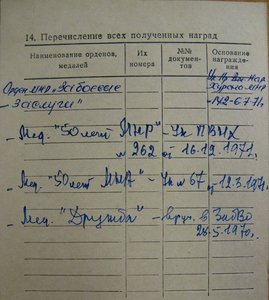 14. Перечисление всех полученных наград
Наименование орденов, медалей
Их номера
№№ документов
Основание награждения
Орден МНР "За боевые
заслуги"
Ук През Вел Нар
Хурала МНР
№2-6.7.71г.
- Мед. "50 лет МНР" - Ук ПВНХ
№ 262 от 16.12.1971г.
- Мед. "50 лет МНА" - Ук № 67 от 12.3.1971г.
- Мед. "Дружба" - вруч. в ЗабВО
28.5.1970г.